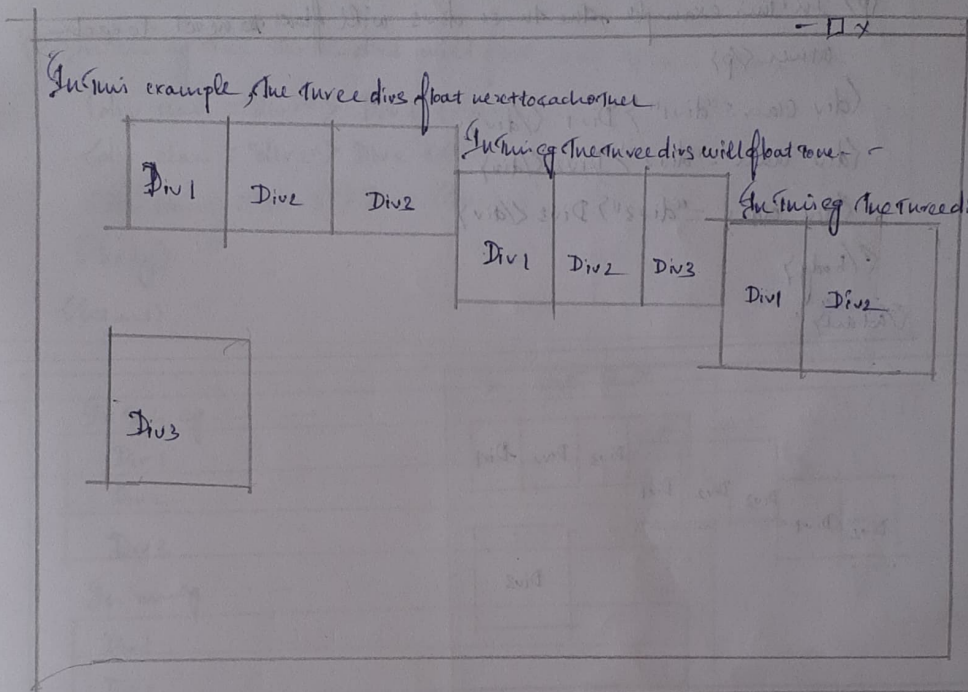 In this example, the three divs float next to each other
Div1 Div2 Div2
In this eg the three divs will float
Div1 Div2 Div3
In this eg the three d
Div1 Div2
Div3